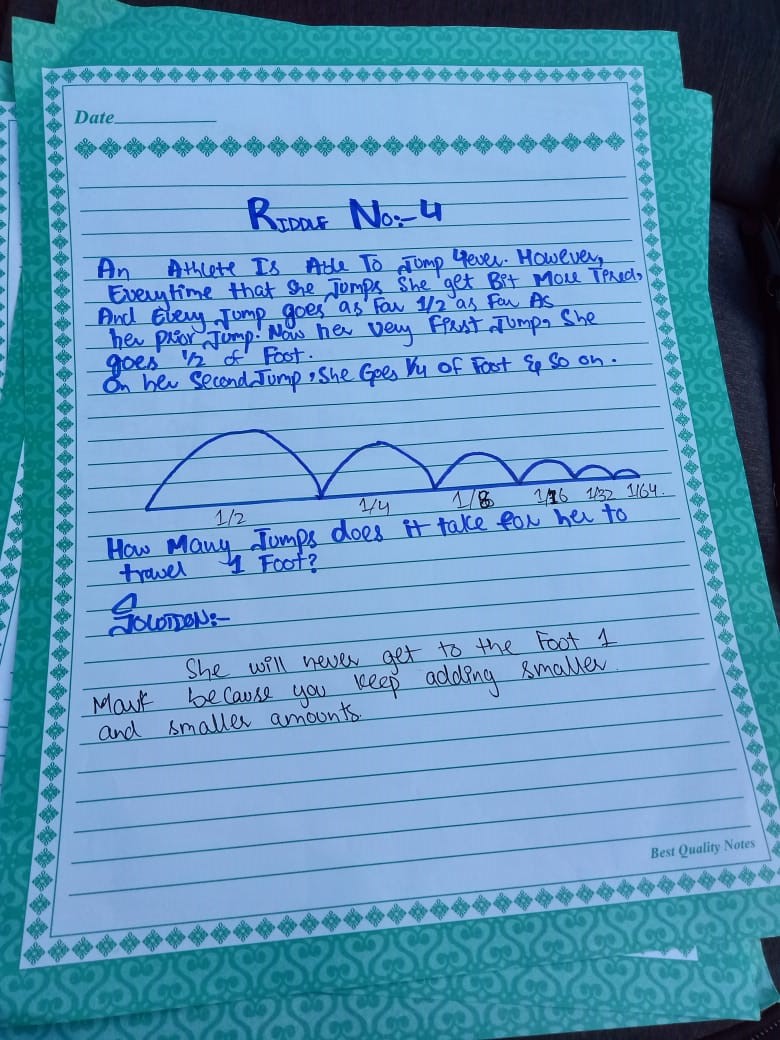 Date
RIDDLE No:- 4
An Athlete Is Able To Jump 4ever. However,
Everytime that she Jumps She get Bit More Tired,
And Every Jump goes as Far 1/2 as Far As
her prior Jump. Now her very First Jump, She
goes 1/2 of Foot.
On her Second Jump, She Goes 1/4 of Foot & So on.
1/2 1/4 1/8 1/16 1/32 1/64.
How Many Jumps does it take for her to
travel 1 Foot?
SOLUTION:-
She will never get to the Foot 1
Mark because you keep adding smaller
and smaller amounts.
Best Quality Notes